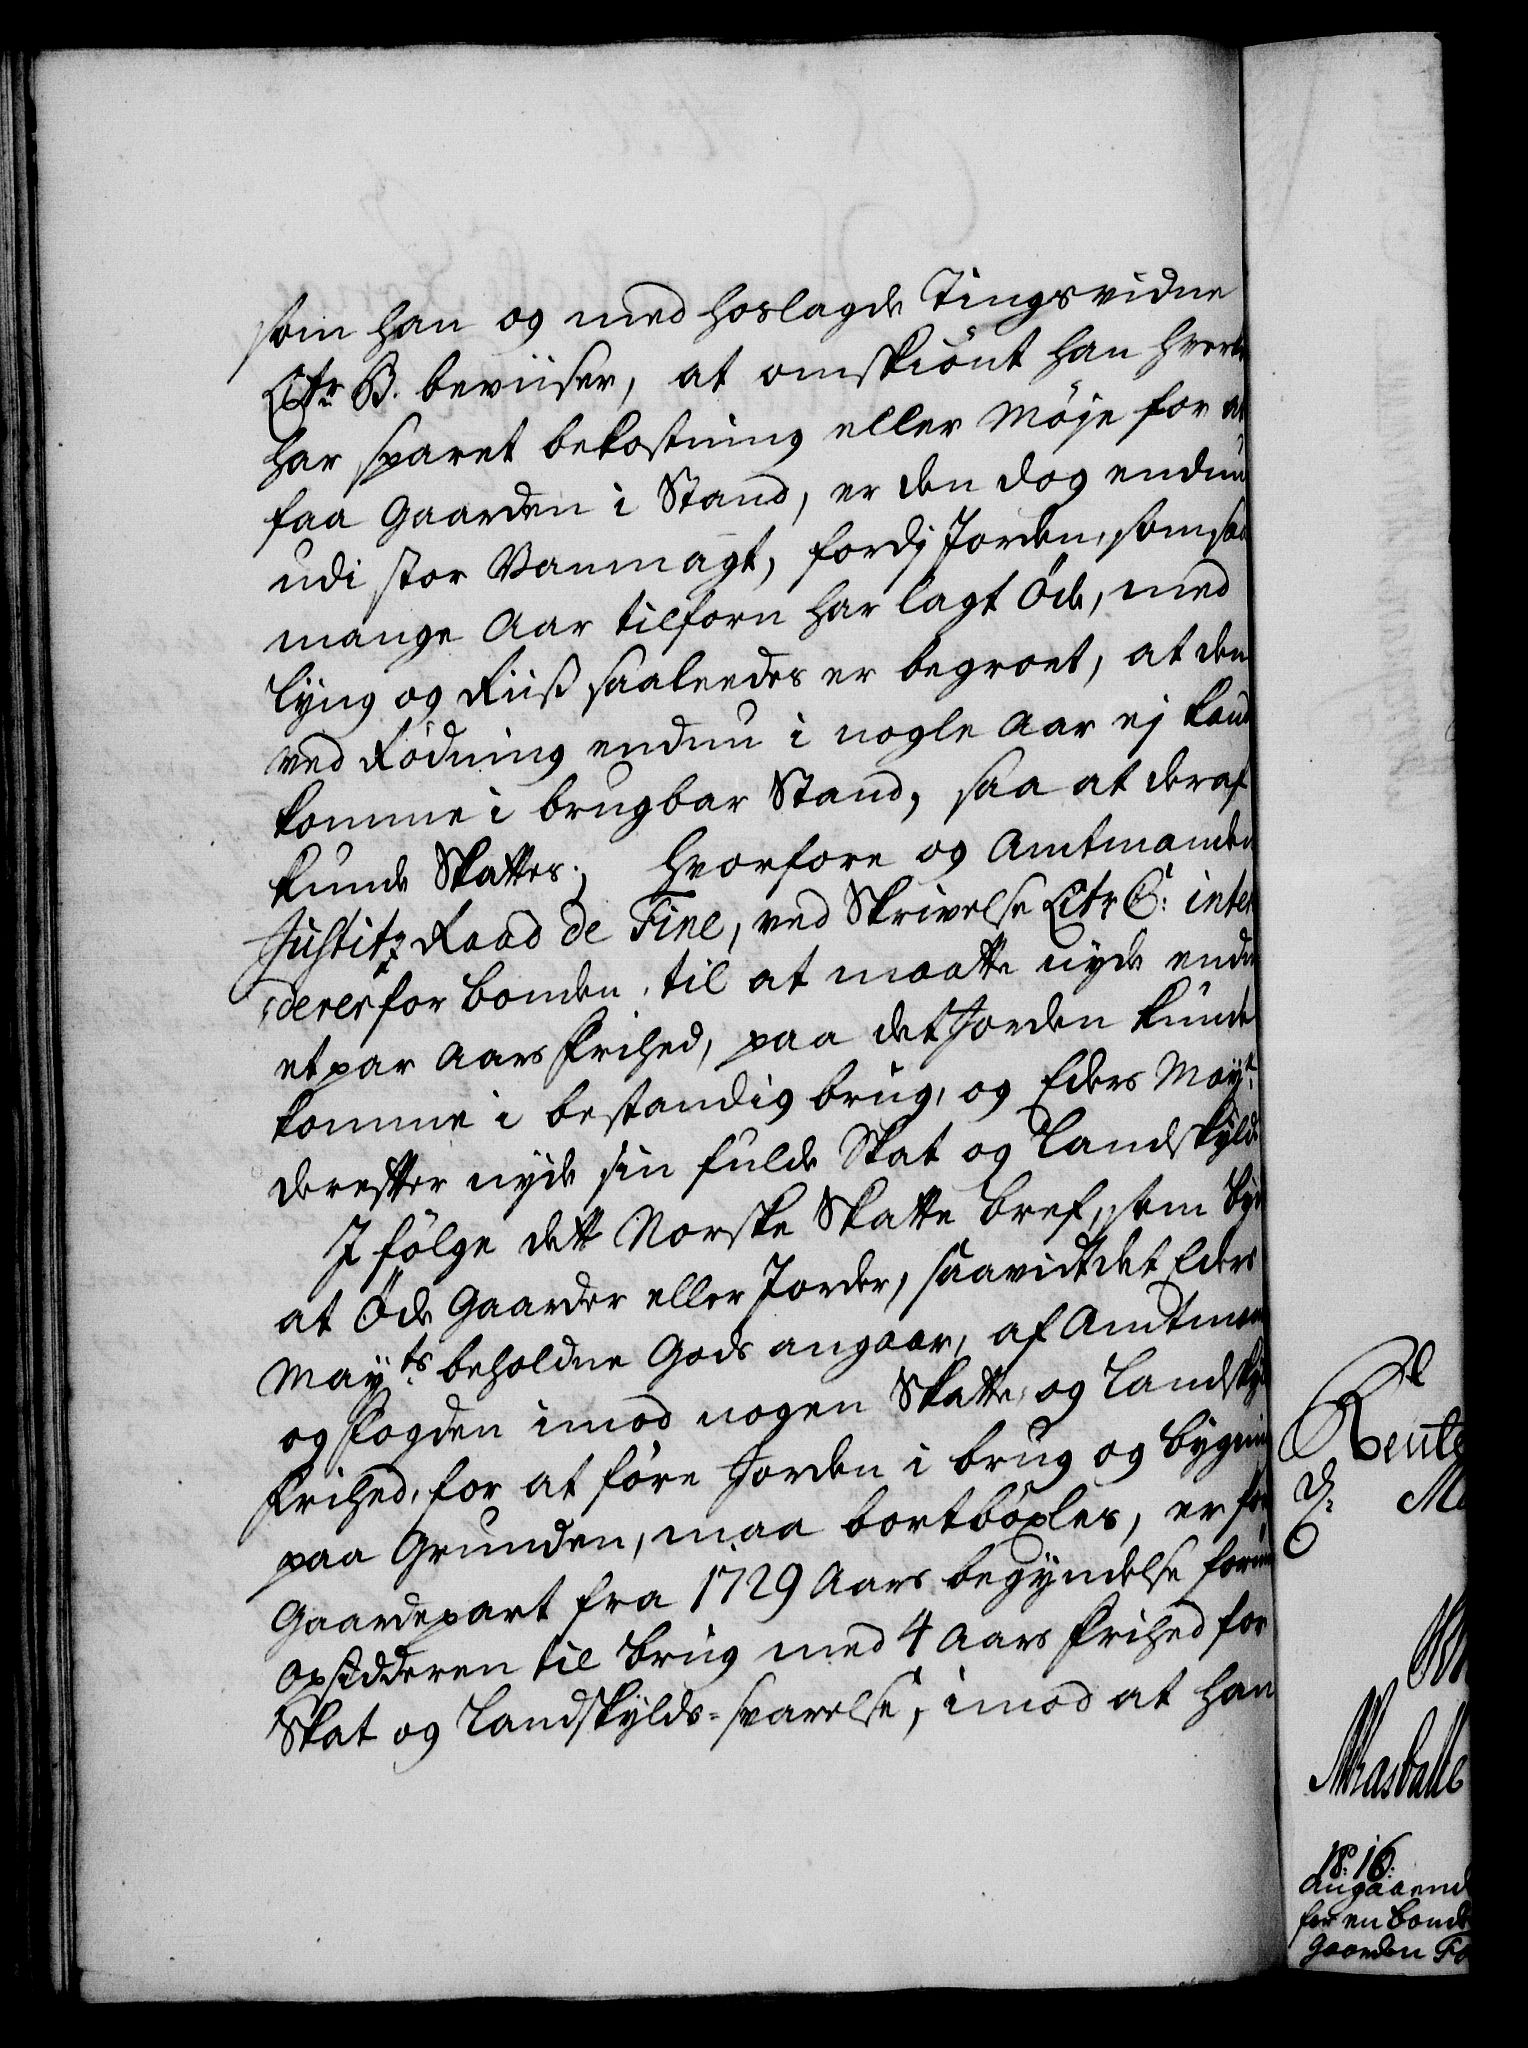 som han og med hoslagde Tingsvidne
Litr B. beviiser, at omskiönt han hver
har sparet bekostning eller Möje for at
faa Gaarden i Stand, er den dog endnu
udi stor Vanmagt, fordj Jorden, som saa
mange Aar tilforn har lagt Öde, med
Lÿng og Riiß saaleedes er begroet, at den
ved Rödning endnu i nogle Aar ej kand
komme i brugbar Stand, saa at deraf
kunde Skattes; hvorfore og Amtmanden
Justitz Raad de Fine, ved Skrivelse Litr C: inter
cderer for bonden, til at maatte nyde endnu
et par Aars Frihed, paa det Jorden kunde
komme i bestandig brug, og Eders Mayt.
derefter nyde sin fulde Skat og Landskyld
I fölge dett Norske Skatte bref, som by
at Öde Gaarder eller Jorder, saavidt det Eders
Mayts. beholdne Gods angaar, af Amtman
og Fogden imod nogen Skatte og Landsky
Frihed, for at före Jorden i brug og bygni
paa Grunden, maa bortböxles, er
Gaardepart fra 1729 Aars begyndelse
Opsidderen til brug med 4 Aars Frihed for
Skat og Landskylds-svarelse, imod at han
Rente
Ma
18: 16:
Angaaend
for en bonde
Gaarden Fo